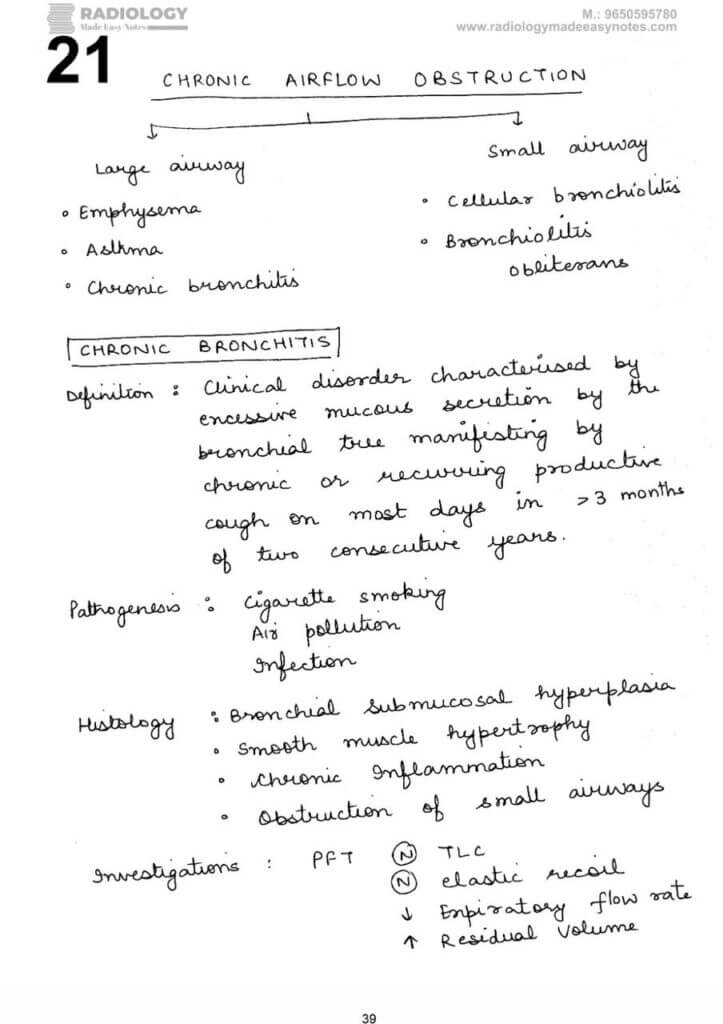 RADIOLOGY
Made Easy Notes
M.: 9650595780
www.radiologymadeeasynotes.com
21
CHRONIC AIRFLOW OBSTRUCTION
Large airway
• Emphysema
• Asthma
• Chronic bronchitis
Small airway
• Cellular bronchiolitis
• Bronchiolitis
Obliterans
CHRONIC BRONCHITIS
Definition : Clinical disorder characterised by
excessive mucous secretion by the
bronchial tree manifisting by
chronic or recurring productive
cough on most days in >3 months
of two consecutive years.
Pathogenesis : Cigarette smoking
Air pollution
Infection
Histology : Bronchial submucosal hyperplasia
• Smooth muscle hypertrophy
• Chronic Inflammation
• Obstruction of small airways
Investigations : PFT Ⓝ TLC
Ⓝ elastic recoil
↓ Expiratory flow rate
↑ Residual Volume
39